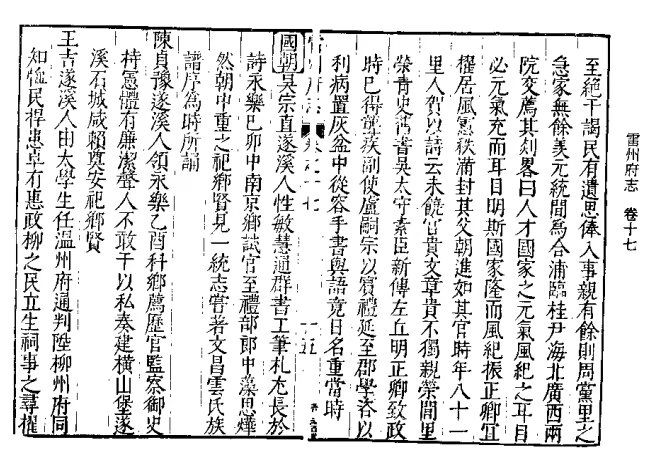 雷州府志 卷十七
至絕干謁民有遺思俸入事親有餘則周黨里之
急家無餘羨元統間為合浦臨桂尹海北廣西兩
院交薦其剡畧曰人才國家之元氣風紀之耳目
必元氣充而耳目明斯國家隆而風紀振正卿宜
擢居風憲秩滿封其父朝進如其官時年八十一
里人賀以詩云未饒官貴文章貴不獨親榮閭里
榮青史舊書吳太守素臣新傳左丘明正卿致政
時已得聾疾副使盧嗣宗以賓禮延至郡學咨以
利病置灰盆中從容手書與語竟日名重當時
國朝吳宗直遂溪人性敏慧通群書工筆札尤長於
詩永樂巳卯中南京鄉試官至禮部郎中藻思燁
然朝中重之祀鄉賢見一統志嘗者文昌雲氏族
譜序為時所誦
陳貞豫遂溪人領永樂乙酉科鄉薦歷官監察御史
持憲體有廉潔聲人不敢干以私奏建橫山堡遂
溪石城咸賴奠安祀鄉賢
王吉遂溪人由太學生任溫州府通判陞柳州府同
知恤民捍患卓有惠政柳之民立生祠事之尋擢
卷之十七
十五